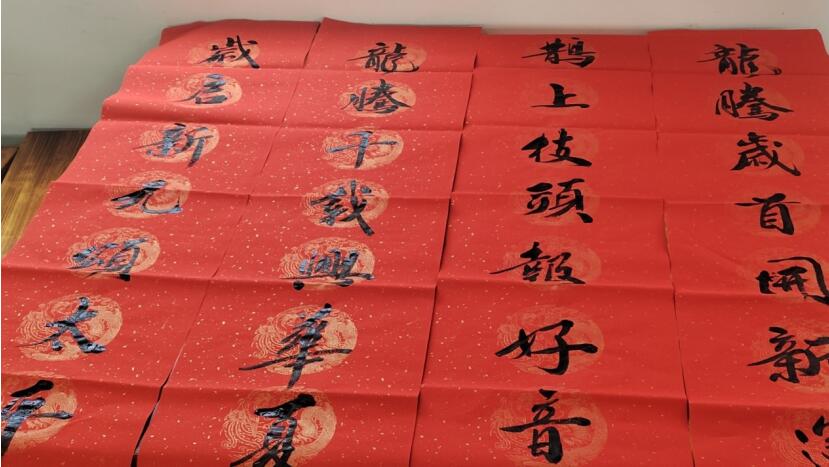 龍騰歲首開新
鵲上枝頭報好音
龍騰千載興華夏
歲启新元頌太平